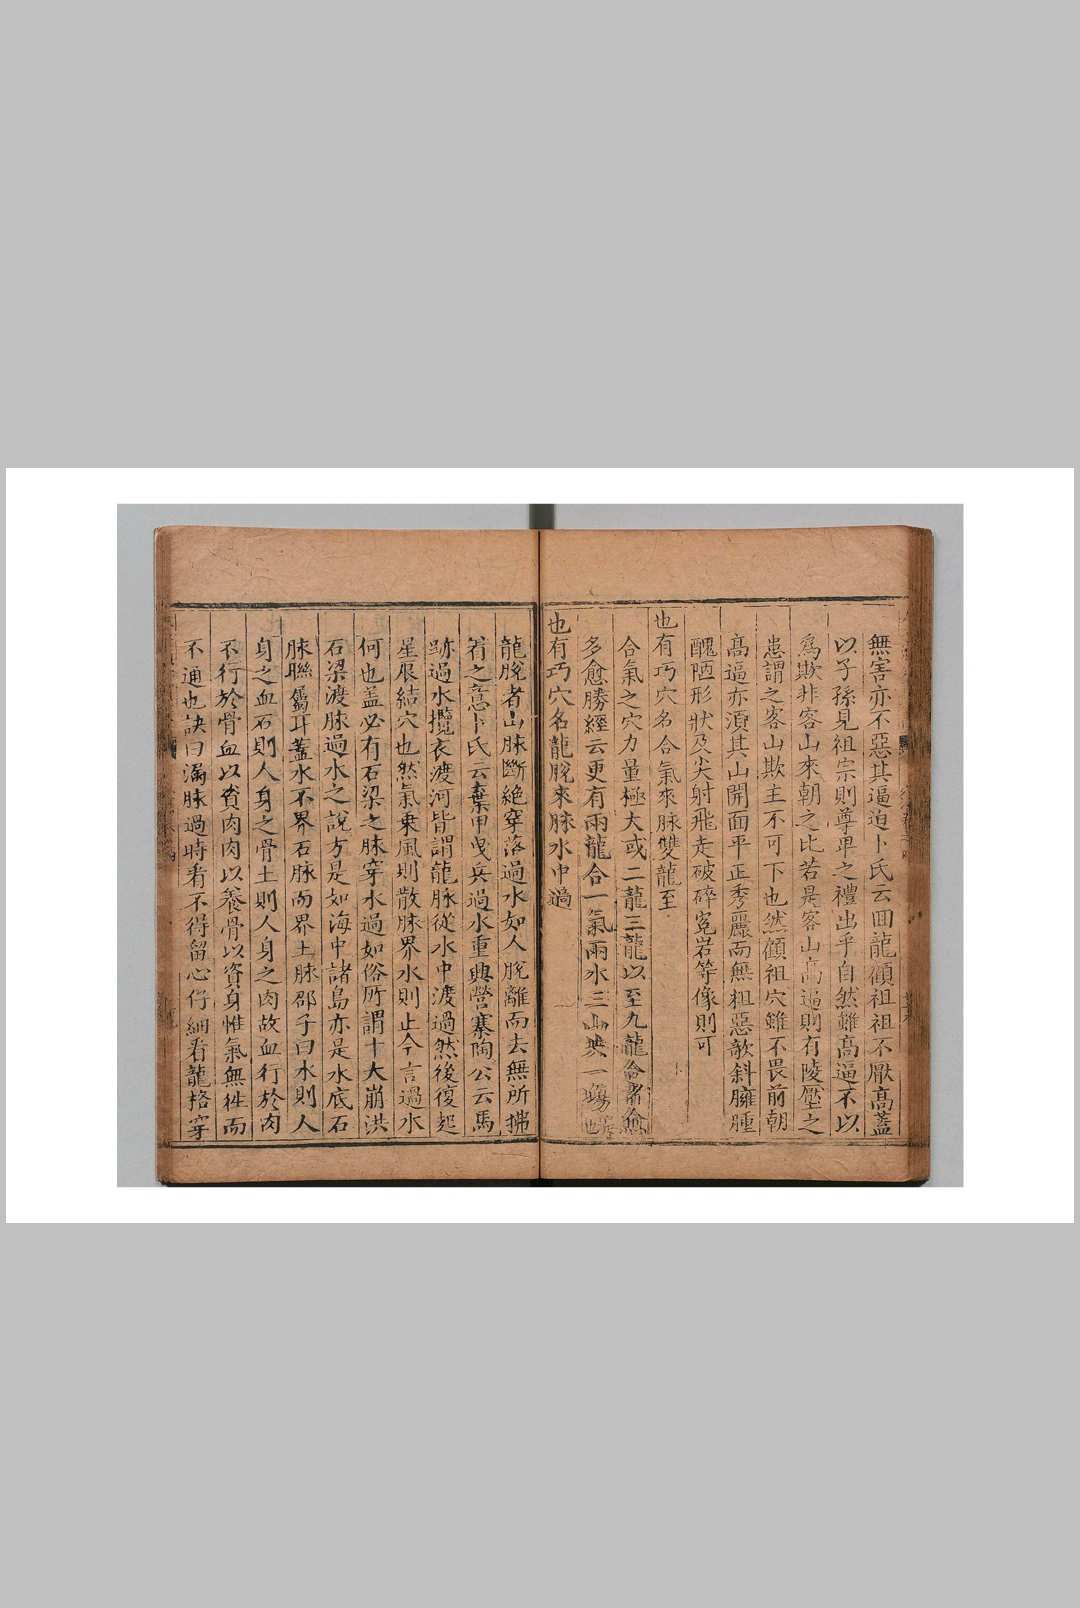 無害亦不惡其逼迫卜氏云回龍顧祖祖不厭高蓋
以子孫見祖宗則尊卑之禮出乎自然雖高逼不以
為欺非客山來朝之比若是客山高逼則有陵壓之
患謂之客山欺主不可下也然顧祖穴雖不畏前朝
高逼亦須其山開面平正秀麗而無粗惡欹斜臃腫
醜陋形狀及尖射飛走破碎冤岩等像則可
也有巧穴名合氣來脉雙龍至
合氣之穴力量極大或二龍三龍以至九龍合者愈
多愈勝經云更有兩龍合一氣兩水三山共一塲
也有巧穴名龍脫來脉水中過
龍脫者山脉斷絶穿落過水如人脫離而去無所拂
着之意卜氏云棄甲曳兵過水重興營寨陶公云馬
跡過水攬衣渡河皆謂龍脉從水中渡過然後復起
星辰結穴也然氣乗風則散脉界水則止今言過水
何也盖必有石梁之脉穿水過如俗所謂十大崩洪
石梁渡脉過水之說方是如海中諸島亦是水底石
脉聯屬耳蓋水不界石脉而界土脉邵子曰水則人
身之血石則人身之骨土則人身之肉故血行於肉
不行於骨血以資肉肉以養骨以資身惟氣無徃而
不通也訣曰漏脉過時看不得留心仔細看龍格穿